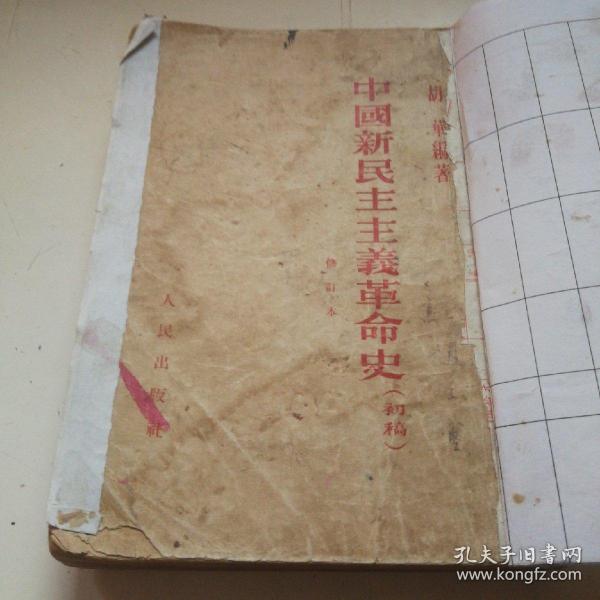 胡華編著
中國新民主主義革命史(初稿)
修訂本
人民出版社
孔夫子旧書网
www.kongfz.com